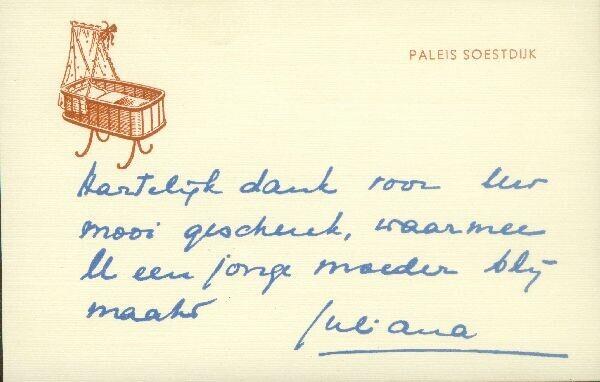 PALEIS SOESTDIJK
Hartelijk dank voor Uw
mooi geschenk, waarmee
U een jonge moeder blij
maakt
Juliana